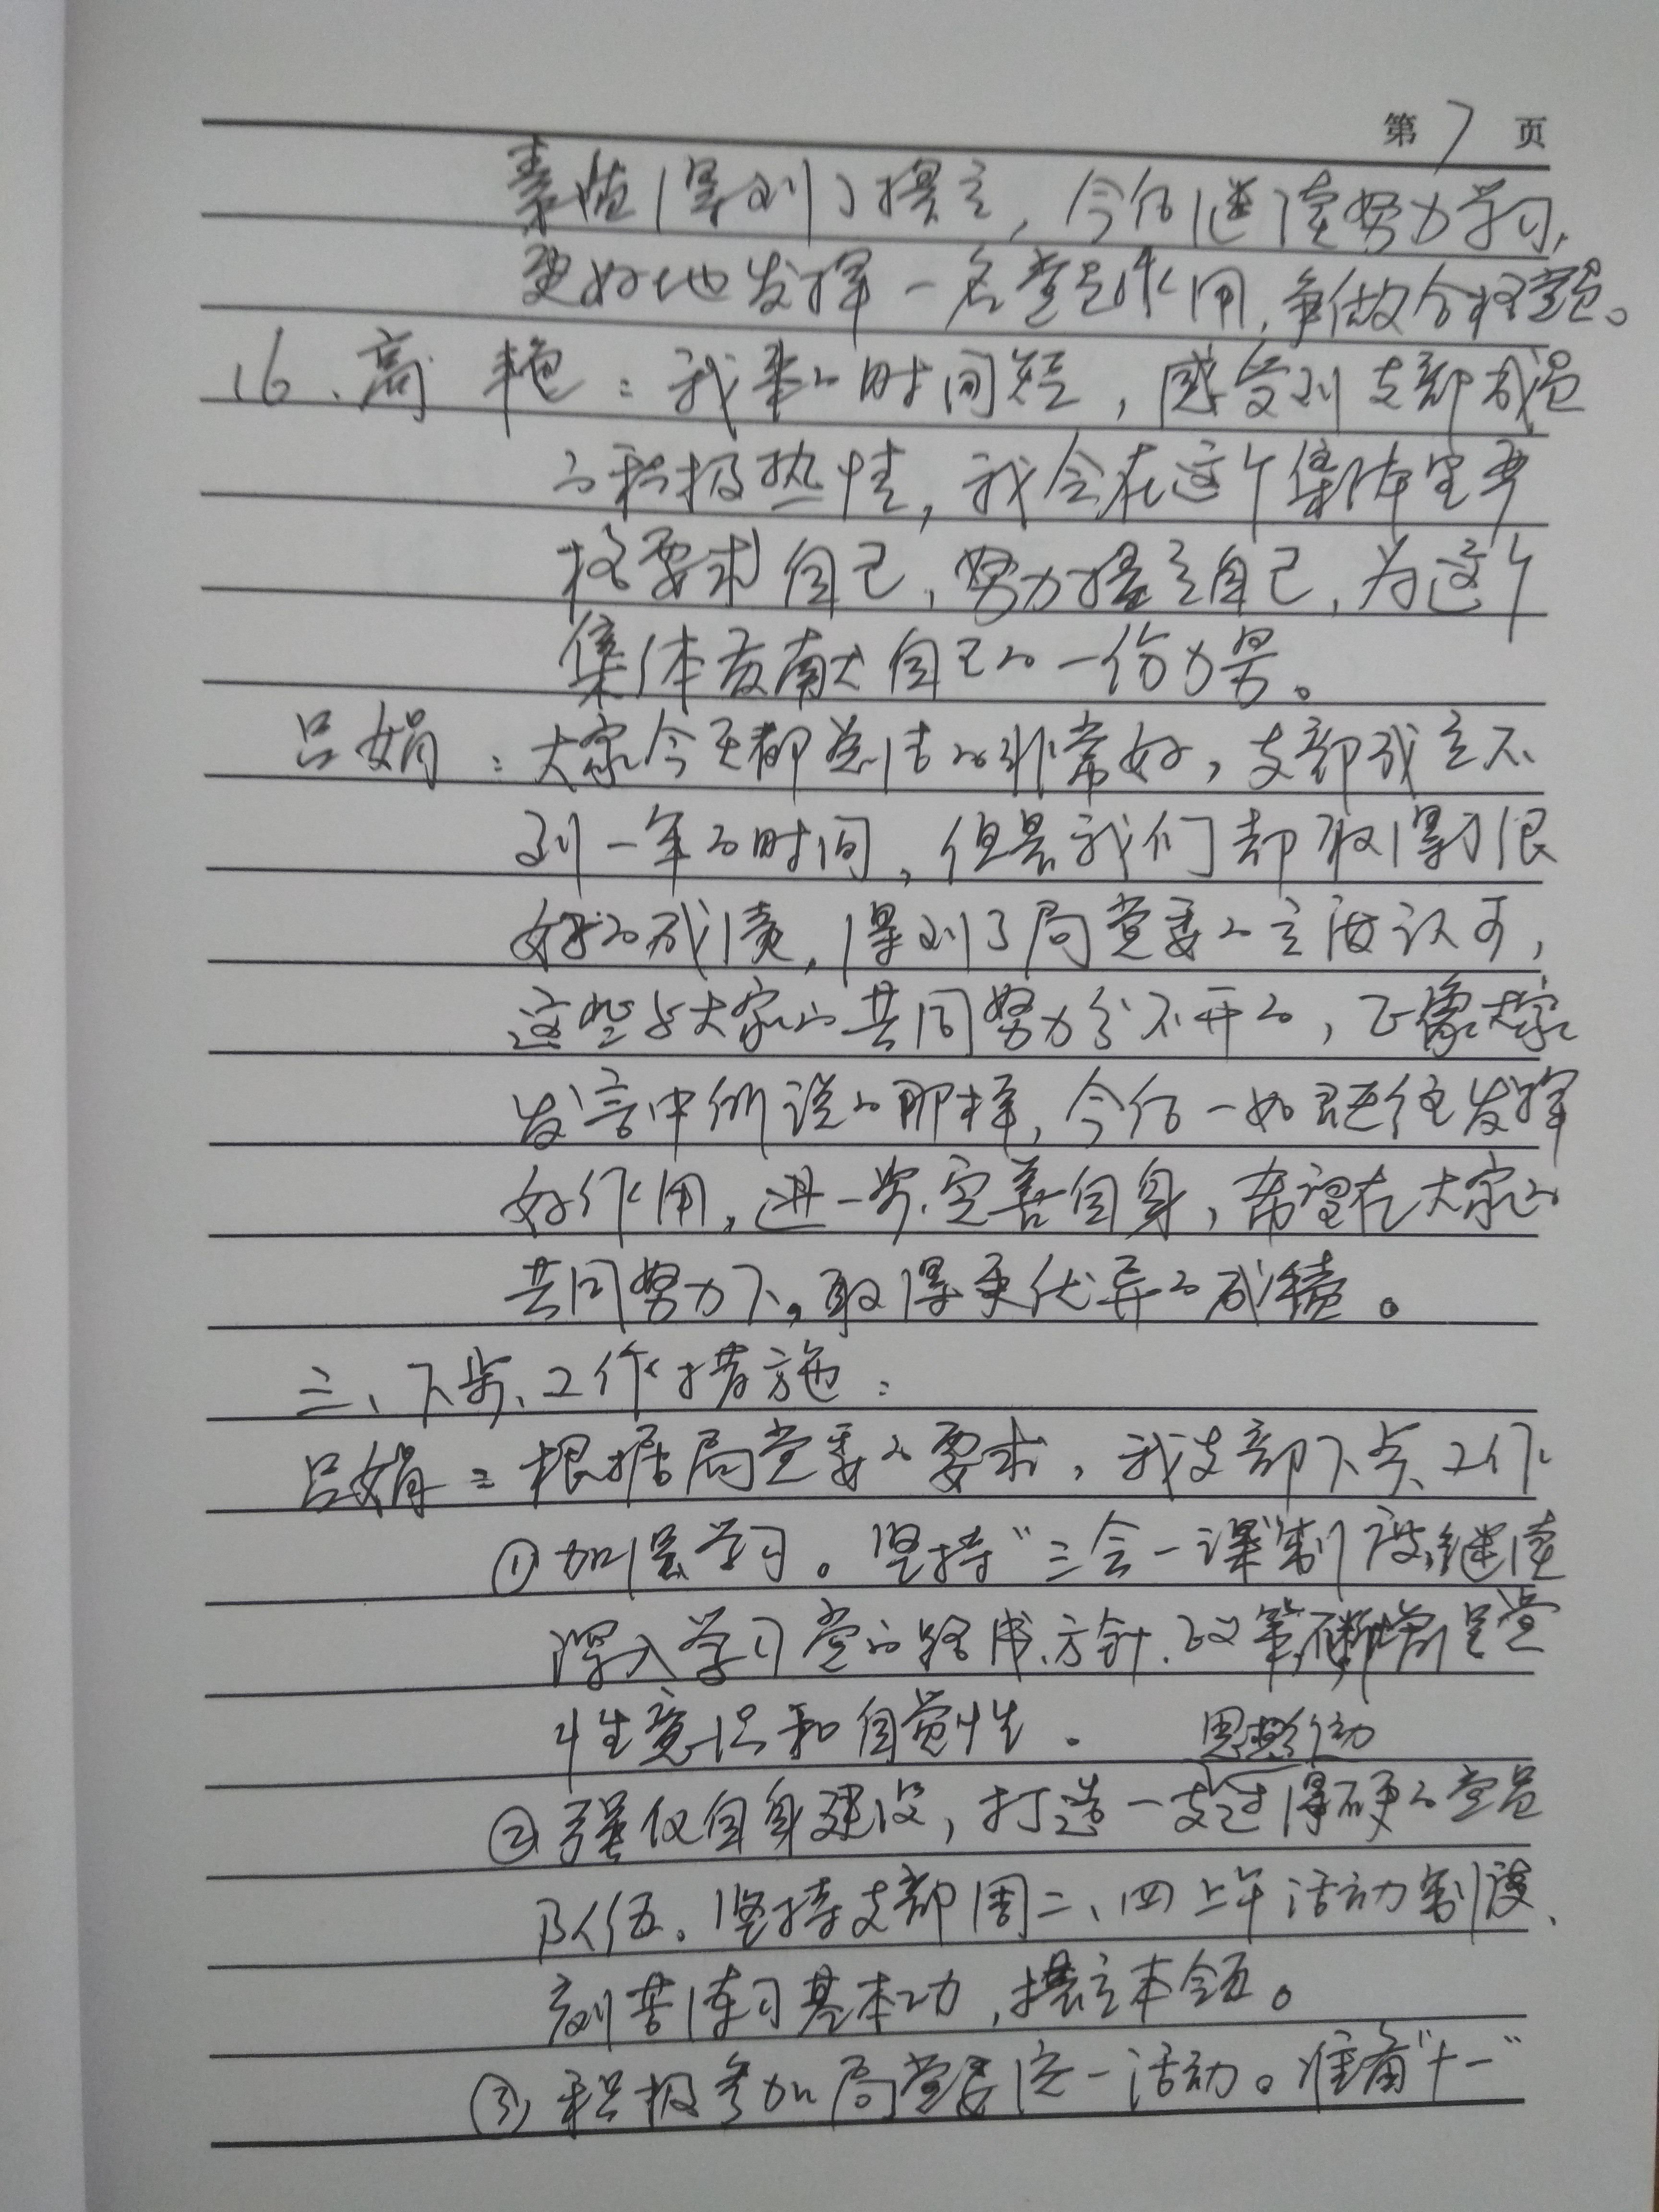 第7页
素质得到了提高，今后继续努力学习，
更好地发挥一名党员作用，争做合格党员。
16、高艳：我来的时间短，感受到支部成员
的积极热情，我会在这个集体里严
格要求自己，努力提高自己，为这个
集体贡献自己的一份力量。
吕娟：大家今天都总结的非常好，支部成立不
到一年的时间，但是我们却取得了很
好的成绩，得到了局党委的高度认可，
这些与大家的共同努力分不开的，正像大家
发言中所说的那样，今后一如既往发挥
好作用，进一步完善自身，希望在大家的
共同努力下，取得更优异的成绩。
三、下步工作措施：
吕娟：根据局党委的要求，我支部下步工作
①加强学习。坚持“三会一课”制度，继续
深入学习党的路线、方针、政策，不断增强党
性意识和自觉性。
思想行动
②强化自身建设，打造一支过得硬的党员
队伍。坚持支部周二、四上午活动制度、
刻苦练习基本功，提高本领。
③积极参加局党委统一活动。准备“十一”